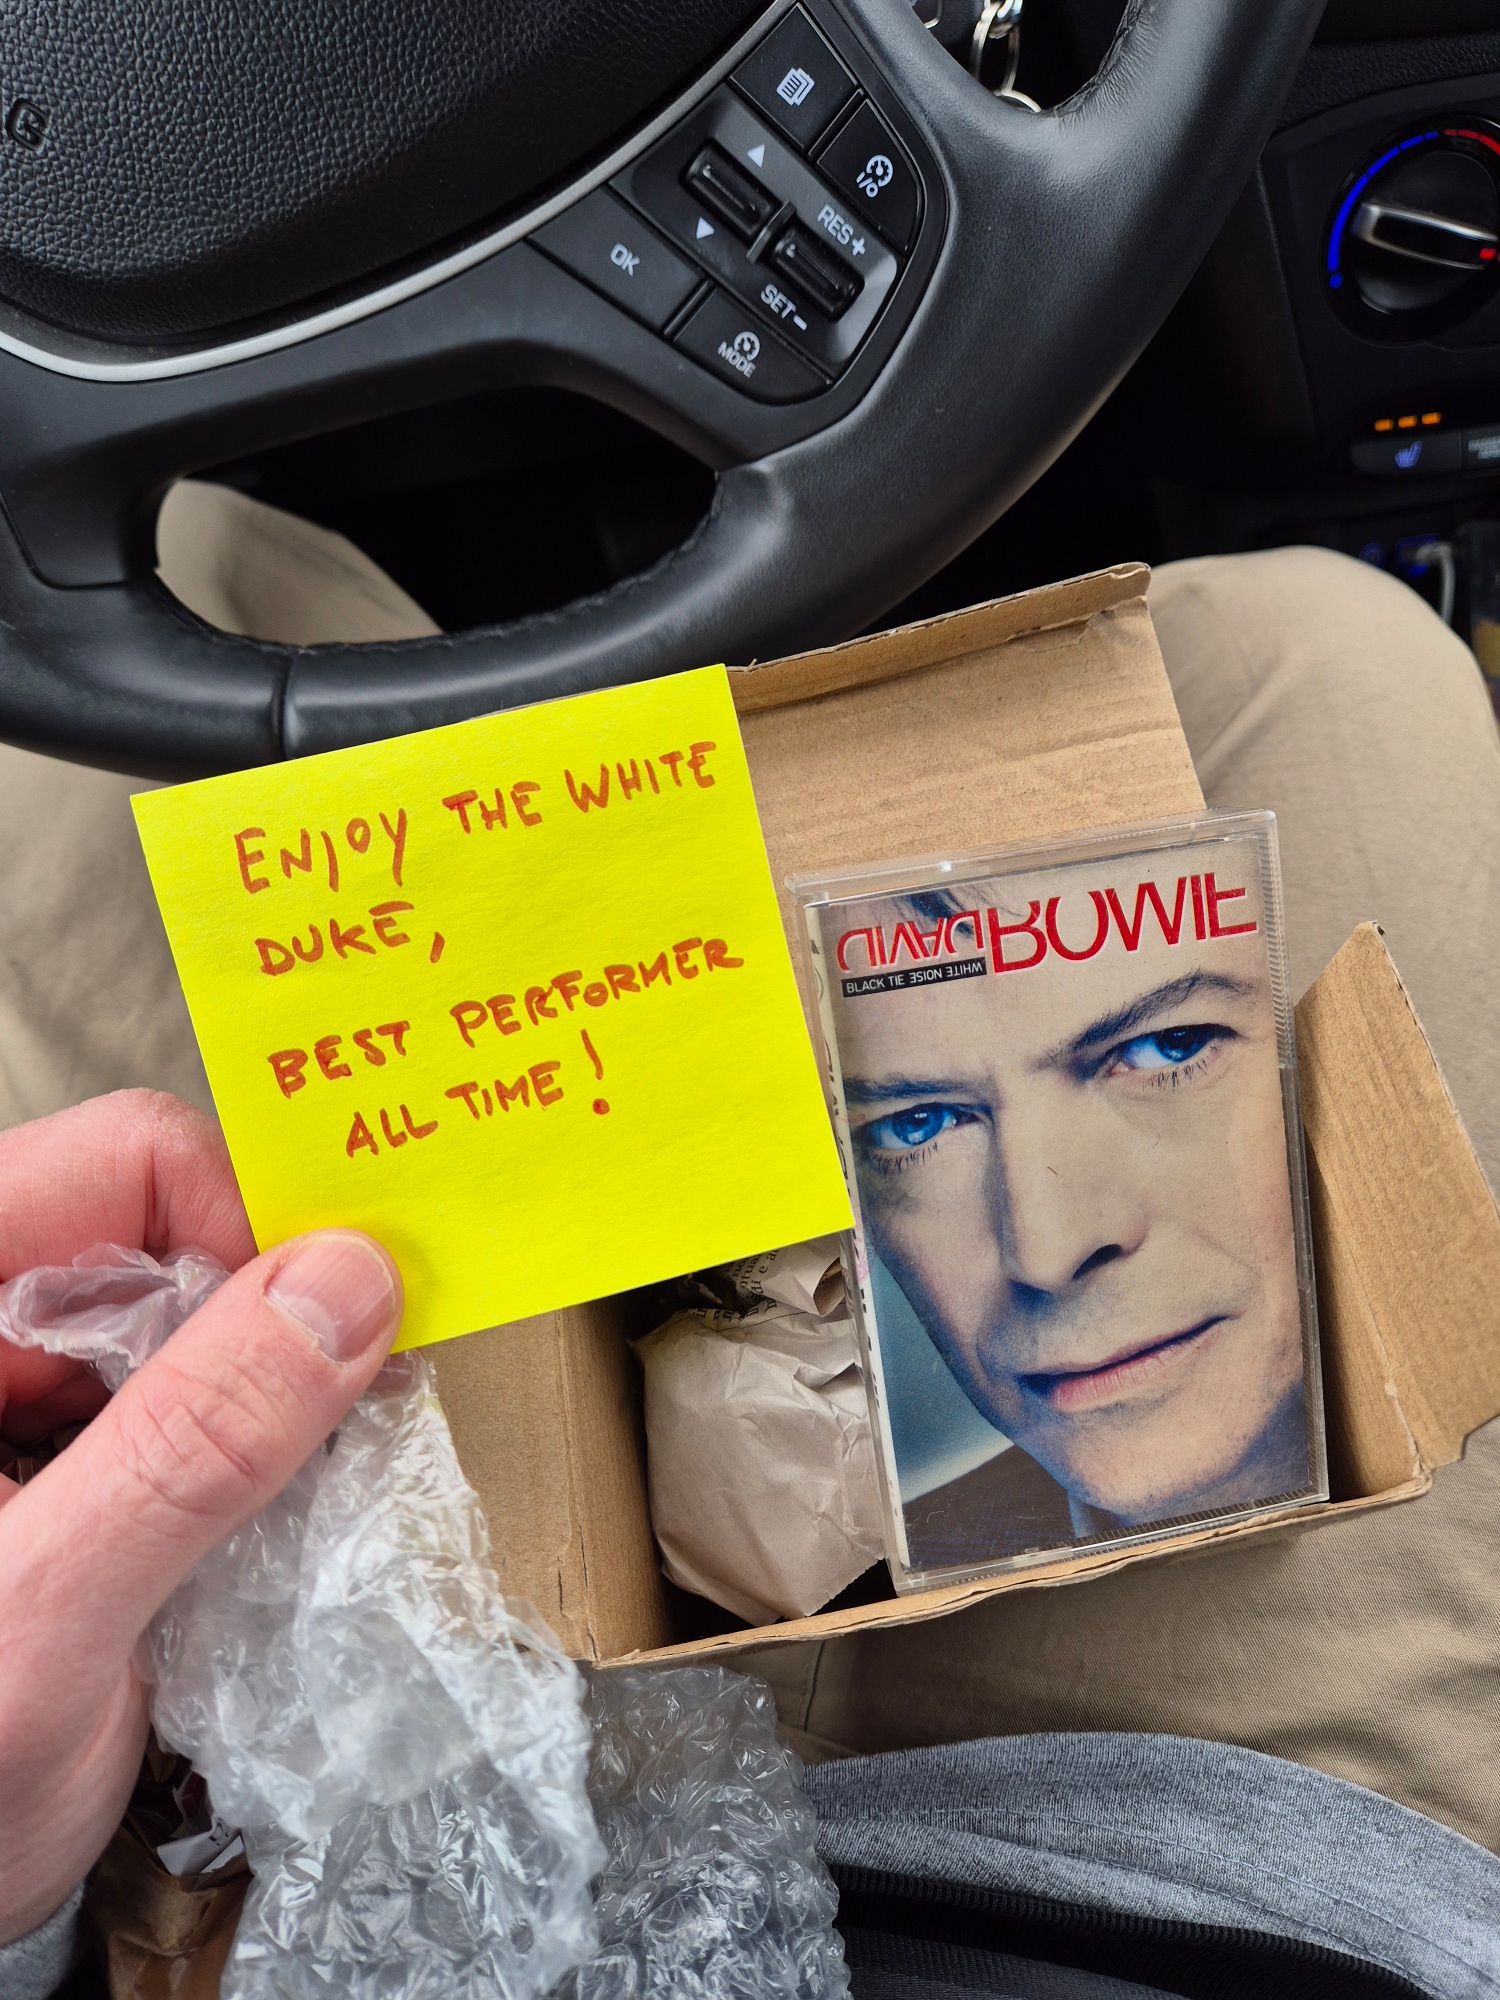 RES +
OK
SET -
MODE
ENJOY THE WHITE
DUKE,
BEST PERFORMER
ALL TIME!
DAVID BOWIE
BLACK TIE WHITE NOISE